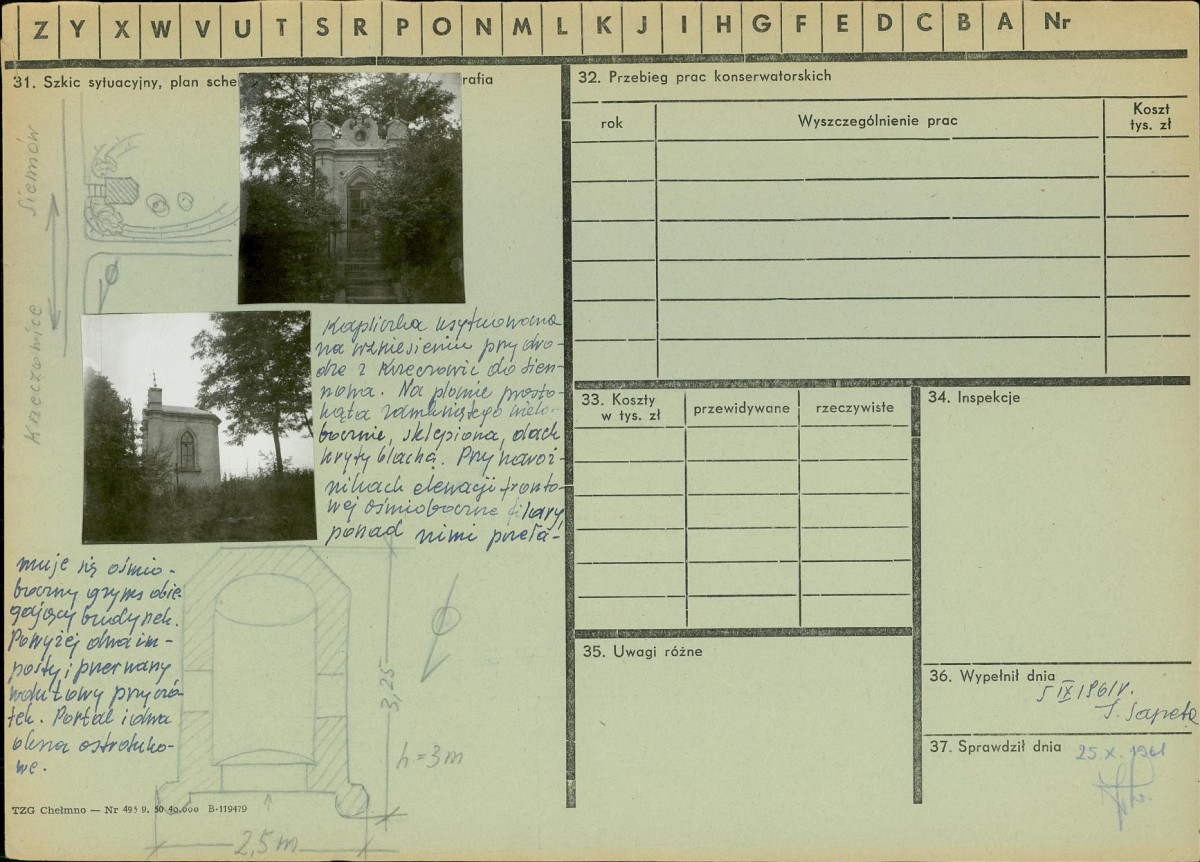 Z Y X W V U T S R P O N M L K J I H G F E D C B A Nr
31. Szkic sytuacyjny, plan sche
rafia
Siennów
Krzeczowice
Kapliczka usytuowana
na wzniesieniu przy dro-
dze z Krzeczowic do Sien-
nowa. Na planie prosto-
kąta zamkniętego wielo-
bocznie, sklepiona, dach
kryty blachą. Przy naroż-
nikach elewacji fronto-
wej ośmioboczne filary,
ponad nimi przeła-
muje się ośmio-
boczny gzyms obie-
gający budynek.
Powyżej dwa im-
posty i przerwany
wolutowy przyczó-
łek. Portal i dwa
okna ostrołuko-
we.
3,25
h = 3 m
2,5 m
TZG Chełmno — Nr 495 9. 50 40.000 B-119479
32. Przebieg prac konserwatorskich
rok
Wyszczególnienie prac
Koszt
tys. zł
33. Koszty
w tys. zł
przewidywane
rzeczywiste
34. Inspekcje
35. Uwagi różne
36. Wypełnił dnia
5 IX 1961 r.
S. Sapeta
37. Sprawdził dnia
25. X. 1961